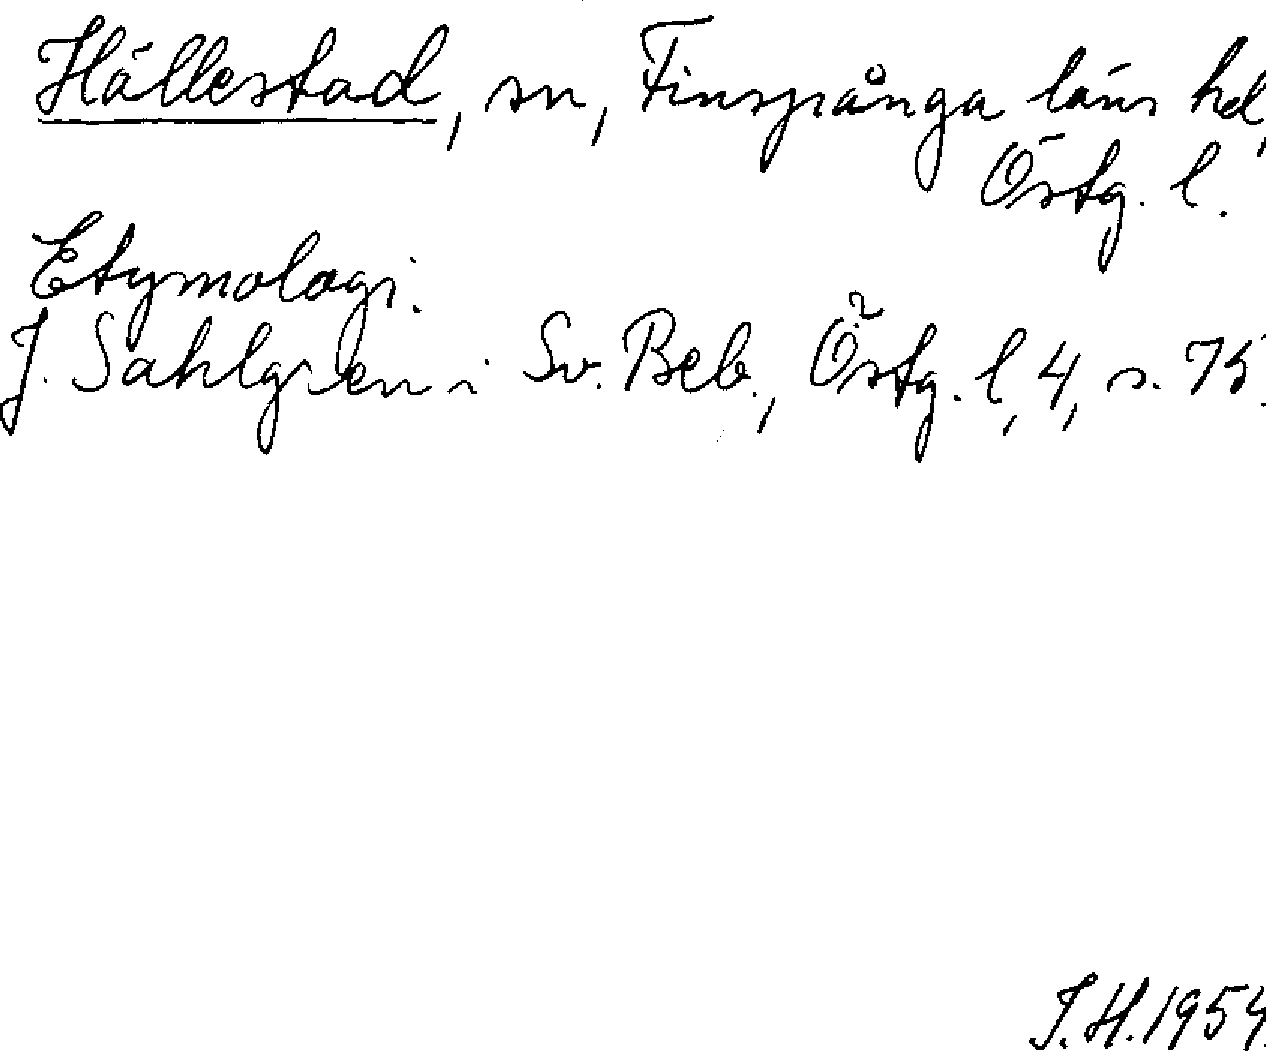 Hällestad, sn, Finspånga läns hd,
Östg. l.
Etymologi.
J. Sahlgren i Sv. Beb., Östg. l, 4, s. 75.
I.H. 1954.